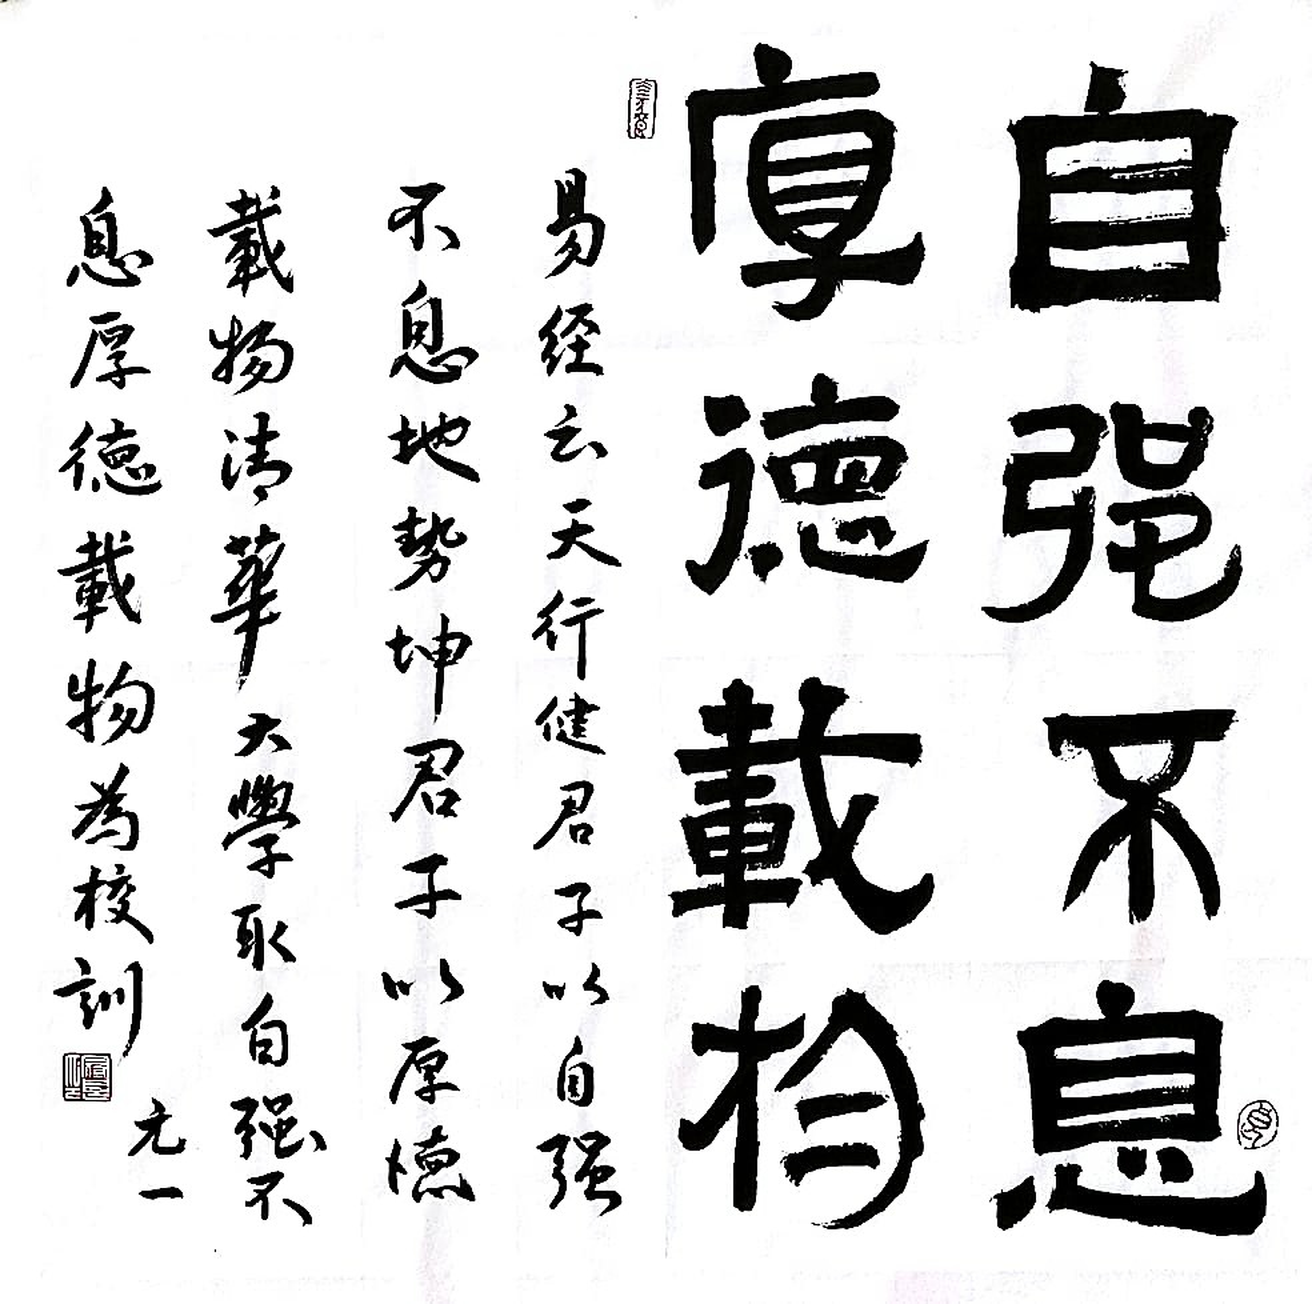 自强不息
厚德載物
易经云天行健君子以自强
不息地势坤君子以厚德
載物清華大學取自强不
息厚德載物為校訓
元一